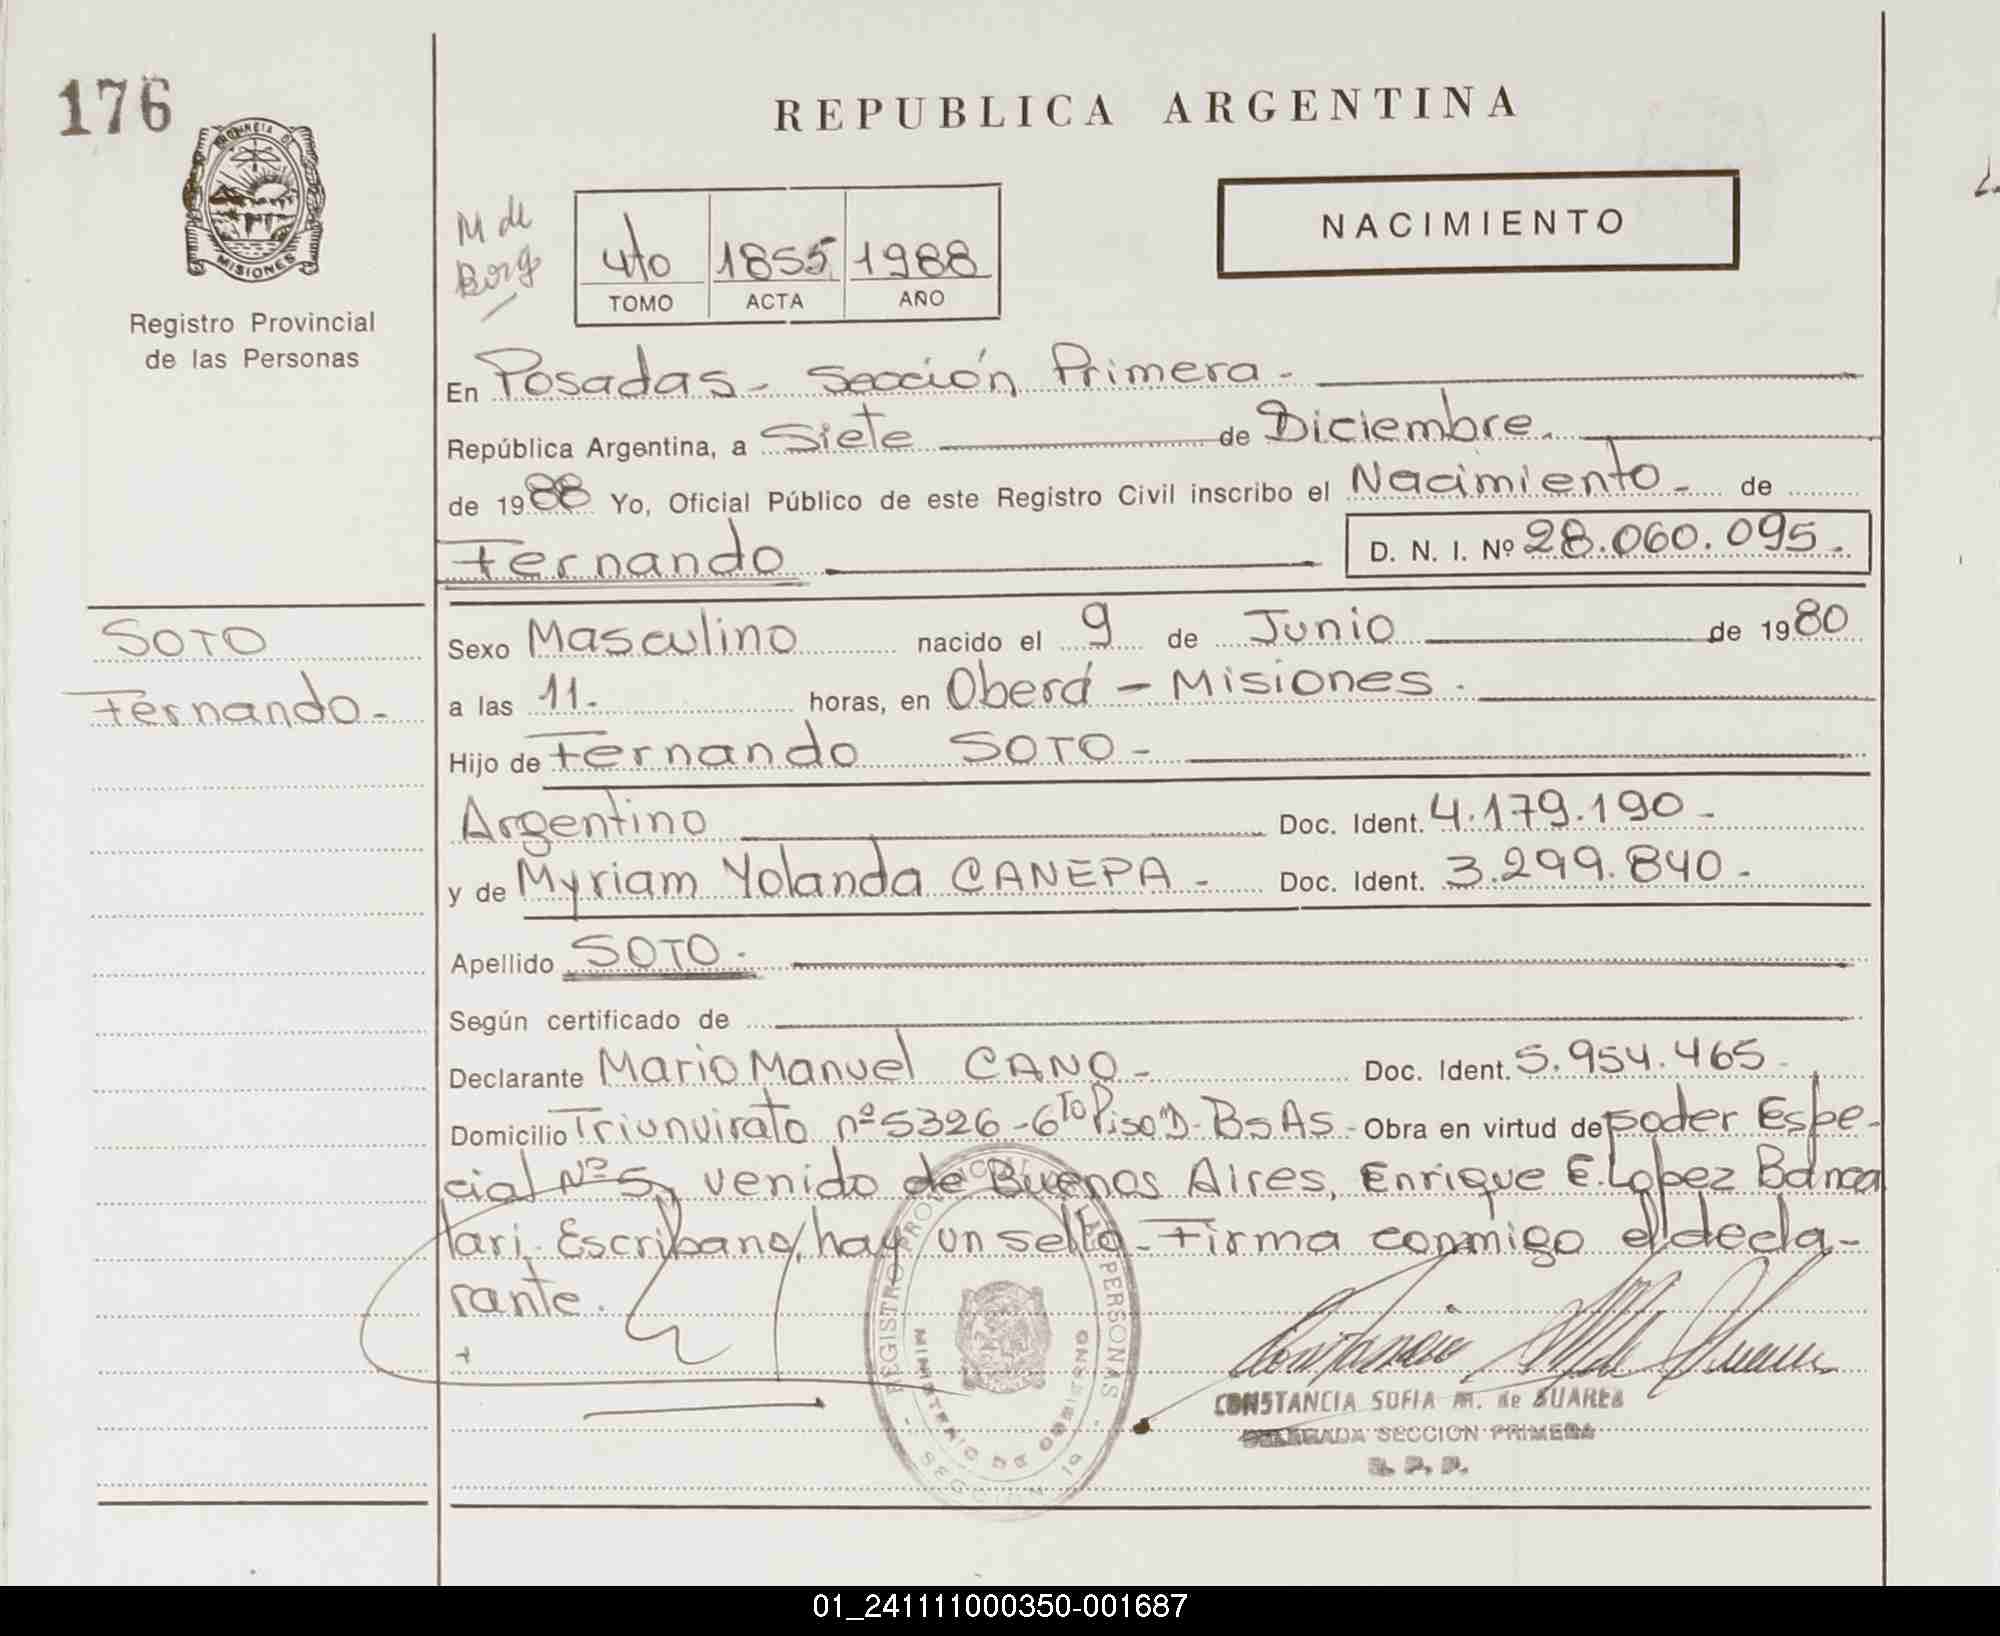 176
REPUBLICA ARGENTINA
PROVINCIA DE
MISIONES
Registro Provincial
de las Personas
M de
Borg
4to 1855 1988
TOMO ACTA AÑO
NACIMIENTO
En Posadas - Sección Primera -
República Argentina, a Siete de Diciembre.
de 1988 Yo, Oficial Público de este Registro Civil inscribo el Nacimiento - de
Fernando D. N. I. Nº 28.060.095.
SOTO
Fernando -
Sexo Masculino nacido el 9 de Junio de 1980
a las 11. horas, en Oberá - Misiones.
Hijo de Fernando SOTO -
Argentino Doc. Ident. 4.179.190 -
y de Myriam Yolanda CANEPA - Doc. Ident. 3.299.840 -
Apellido SOTO.
Según certificado de
Declarante Mario Manuel CANO - Doc. Ident. 5.954.465
Domicilio Triunvirato nº 5326 - 6to Piso "D" - Bs As - Obra en virtud de poder Espe-
cial Nº 5, venido de Buenos Aires, Enrique E. Lopez
tari - Escribano, hay un sello - Firma conmigo el decla-
rante.
REGISTRO PROVINCIAL DE LAS PERSONAS
MINISTERIO DE GOBIERNO
SECCION 1ª
CONSTANCIA SOFIA M. de SUAREZ
DELEGADA SECCION PRIMERA
R. P. P.
01_241111000350-001687